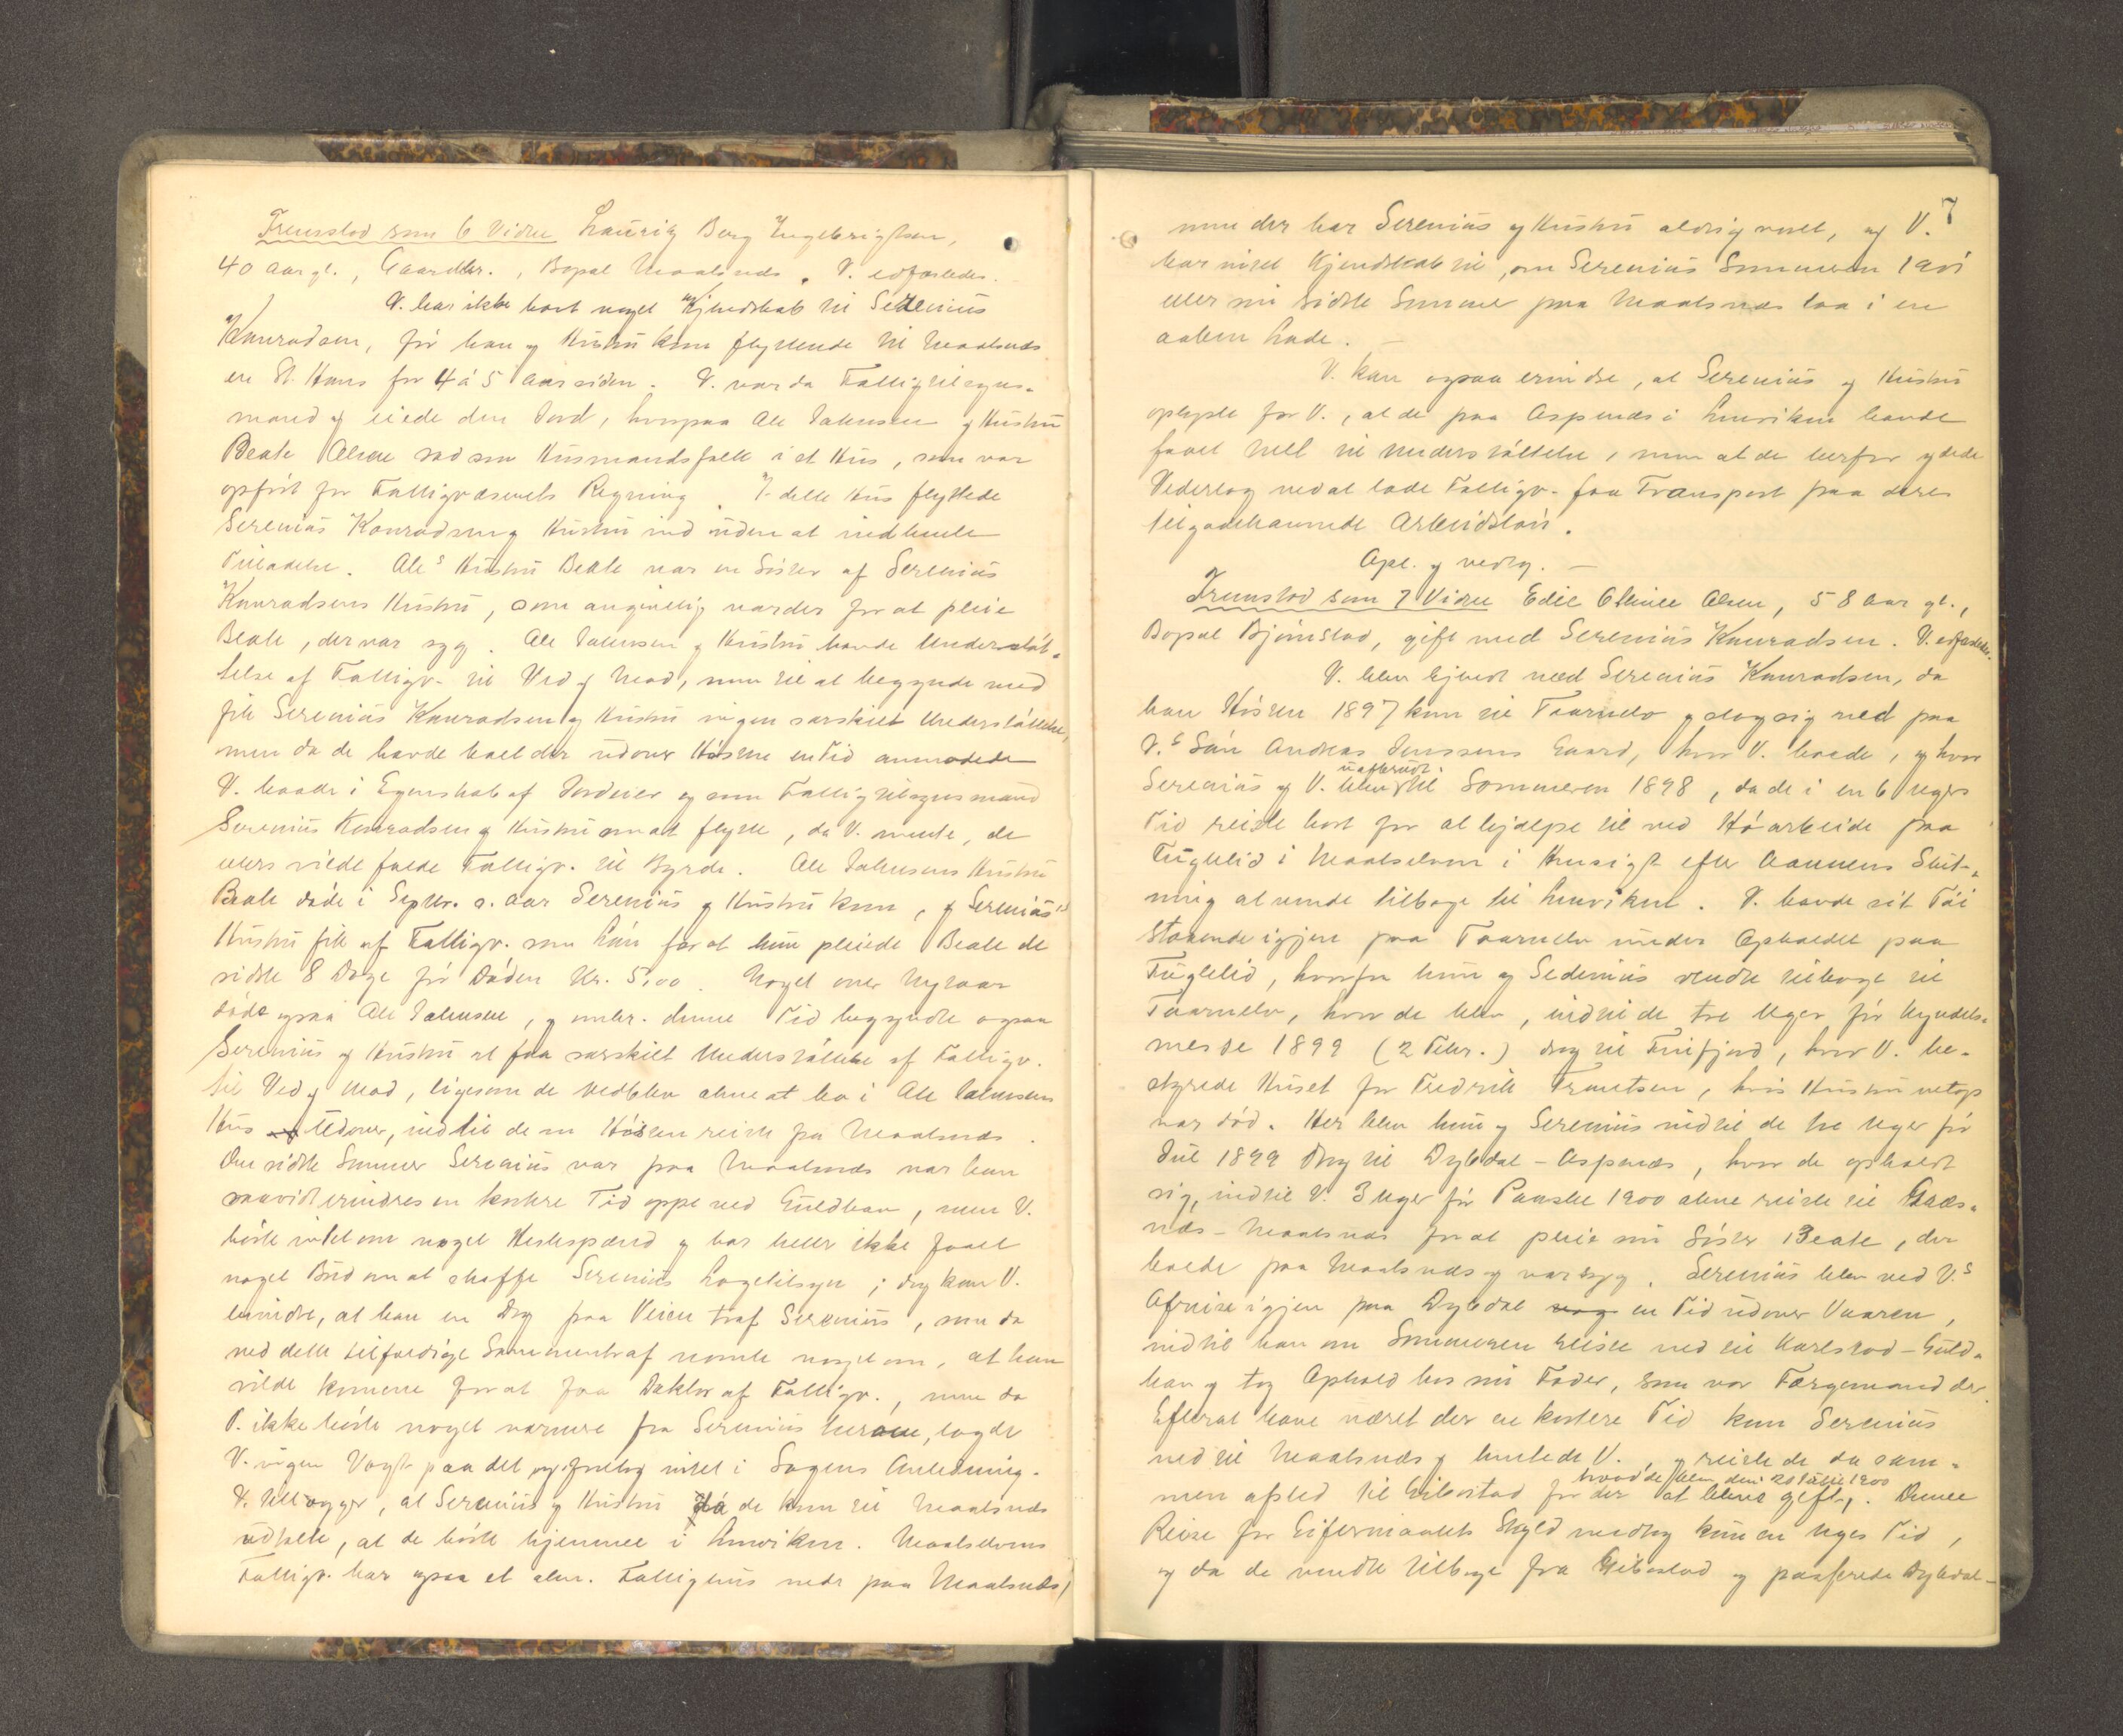 Fremstod som 6 Vidne Lauritz Berg Ingebrigtsen,
40 aar gl., Gaardbr., Bopæl Maalsnæs. V. edfæstedes.
V. har ikke havt noget Kjendskab til Serenius
Konradsen, før han og Hustru kom flyttende til Maalsnæs
en St. Hans for 4 à 5 Aar siden. V. var da Fattigtilsyns-
mand og eiede den Jord, hvorpaa Ole Johnsen og Hustru
Beate Olsen sad som Husmandsfolk i et Hus, som var
opført for Fattigvæsenets Regning. I dette Hus flyttede
Serenius Konradsen og Hustru ind uden at indhente
Tilladelse. Ole's Hustru Beate var en Søster af Serenius
Konradsens Hustru, som angivelig var der for at pleie
Beate, der var syg. Ole Johnsen og Hustru havde Understøt-
telse af Fattigv. til Ved og Mad, men til at begynde med
fik Serenius Konradsen og Hustru ingen særskilt Understøttelse,
men da de havde boet der udover Høsten en Tid anmodede
V. baade i Egenskab af Jordeier og som Fattigtilsynsmand
Serenius Konradsen og Hustru om at flytte, da V. mente, de
ellers vilde falde Fattigv. til Byrde. Ole Johnsens Hustru
Beate døde i Septbr. s. Aar Serenius og Hustru kom, og Serenius's
Hustru fik af Fattigv. som Løn for at hun pleiede Beate de
sidste 8 Dage før Døden Kr. 5,00. Noget over Nytaar
døde ogsaa Ole Johnsen, og omtr. denne Tid begyndte ogsaa
Serenius og Hustru at faa særskilt Understøttelse af Fattigv.
til Ved og Mad, ligesom de vedblev alene at bo i Ole Johnsens
Hus udover, indtil de om Høsten reiste fra Maalsnæs.
Den sidste Sommer Serenius var paa Maalsnæs var han
saavidt erindres en kortere Tid oppe ved Guldhav, men V.
hørte intet om noget Hestespænd og har heller ikke faaet
noget Bud om at skaffe Serenius Lægetilsyn; dog kan V.
erindre, at han en Dag paa Veien traf Serenius, som da
ved dette tilfældige Sammentræf nævnte noget om, at han
vilde komme for at faa Doktor af Fattigv., men da
V. ikke hørte noget nærmere fra Serenius herom, lagde
V. ingen Vægt paa det og foretog intet i Sagens Anledning.
V. tillægger, at Serenius og Hustru da de kom til Maalsnæs
udtalte, at de hørte hjemme i Lenviken. Maalselvens
Fattigv. har ogsaa et alm. Fattighus nede paa Maalsnæs,
7
men der har Serenius og Hustru aldrig været, og V.
har intet Kjendskab til, om Serenius Sommeren 1901
eller sin sidste Sommer paa Maalsnæs laa i en
aaben Lade. —
V. kan ogsaa erindre, at Serenius og Hustru
oplyste for V., at de paa Aspenæs i Lenviken havde
faaet Mel til Understøttelse, men at de herfor ydede
Vederlag ved at lade Fattigv. faa Transport paa deres
tilgodehavende Arbeidsløn.
Opl. og vedtg. —
Fremstod som 7 Vidne Edle Oline Olsen, 58 aar gl.,
Bopæl Bjørnstad, gift med Serenius Konradsen. V. edfæstedes.
V. blev kjendt med Serenius Konradsen, da
han Høsten 1897 kom til Taarnelv og slog sig ned paa
V.s Søn Andreas Jenssens Gaard, hvor V. boede, og hvor
Serenius og V. blev uafbrudt til Sommeren 1898, da de i en 6 Ugers
Tid reiste bort for at hjælpe til ved Høarbeide paa
Fuglelid i Maalselven i Hensigt efter Aannens Slut-
ning at vende tilbage til Lenviken. V. havde sit Tøi
staaende igjen paa Taarnelv under Opholdet paa
Fuglelid, hvorfra hun og Serenius vendte tilbage til
Taarnelv, hvor de blev, indtil de tre Uger før Kyndels-
messe 1899 (2 Febr.) drog til Finfjord, hvor V. be-
styrede Huset for Fredrik Frantsen, hvis Hustru netop
var død. Her blev hun og Serenius indtil de tre Uger før
Jul 1899 drog til Dybdal-Aspenæs, hvor de opholdt
sig, indtil V. 3 Uger før Paaske 1900 alene reiste til Græs-
næs-Maalsnæs for at pleie sin Søster Beate, der
boede paa Maalsnæs og var syg. Serenius blev ved V.s
Afreise igjen paa Dybdal en Tid udover Vaaren,
indtil han om Sommeren reiste ned til Karlstad-Guld-
hav og tog Ophold hos sin Fader, som var Færgemand der.
Efterat have været der en kortere Tid kom Serenius
ned til Maalsnæs og hentede V., og reiste de da sam-
men afsted til Gibostad for der at blive gift, hvad de blev den 20 Juli 1900. Denne
Reise for Giftermaalets Skyld medtog kun en Uges Tid,
og da de vendte tilbage fra Gibostad og passerede Dybdal-